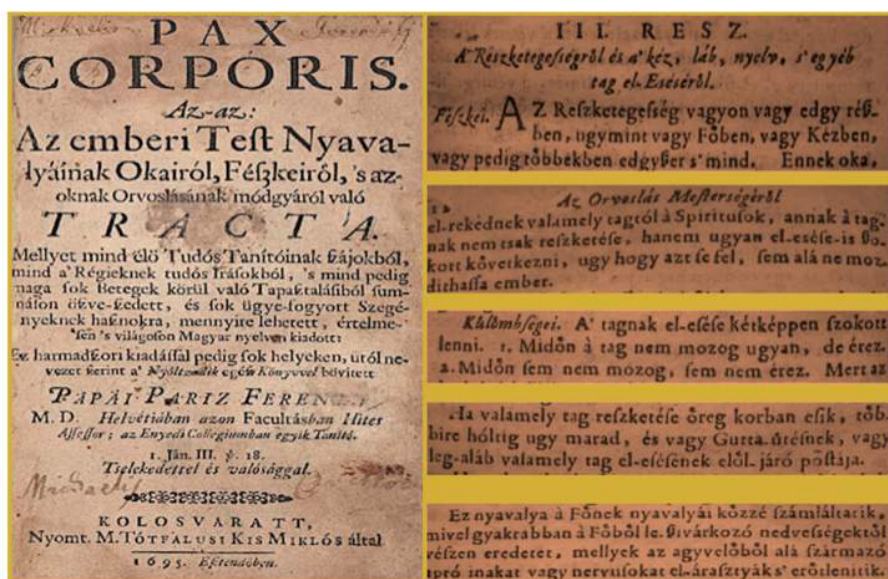 PAX
CORPORIS.
Az-az:
Az emberi Test Nyava-
lyáinak Okairól, Féſzkeiről, 's az-
oknak Orvoslásának módgyáról való
TRACTA.
Mellyet mind élö Tudós Tanítóinak ſzájokból,
mind a' Régieknek tudós Irásokból, 's mind pedig
maga ſok Betegek körül való Tapaſztalásiból ſum-
násſon öſzve-ſzedett, és ſok ügye-fogyott Szegé-
nyeknek haſznokra, mennyire lehetett, értelme-
ſen 's világoſon Magyar nyelven kiadott:
Ez harmadſzori kiadáſſal pedig ſok helyeken, utól ne-
vezet ſzerint a' Nyóltzadik egéſz Könyvvel bövitett
PÁPAI PARIZ FERENCZ
M. D. Helvétiában azon Facultásban Hites
Aſſeſſor; az Enyedi Collegiumban egyik Tanító.
1. Ján. III. ℣. 18.
Tselekedettel és valósággal.
KOLOSVARATT,
Nyomt. M. TÓTFALUSI KIS MIKLÓS által
1695. Eſztendőben.
III. RESZ.
A' Reszketegeſségről és a' kéz, láb, nyelv, s' egyéb
tag el-Eséséről.
Féſzkei. AZ Reſzketegeſség vagyon vagy edgy réſz-
ben, ugymint vagy Főben, vagy Kézben,
vagy pedig többekben edgyſzer s' mind. Ennek oka,
Az Orvoslás Meſterségéről
el-rekednek valamely tagtól à Spirituſok, annak à tag-
nak nem tsak reſzketéſe, hanem ugyan el-eséſe-is ſzo-
kott következni, ugy hogy azt ſe fel, ſem alá ne moz-
dithaſſa ember.
Külömbségei. A' tagnak el-eséſe kétképpen ſzokott
lenni. 1. Midőn à tag nem mozog ugyan, de érez.
2. Midőn ſem nem mozog, ſem nem érez. Mert az
Ha valamely tag reſzketéſe öreg korban eſik, több-
bire hóltig ugy marad, és vagy Gutta-ütéſnek, vagy
leg-aláb valamely tag el-eséſének elől-járó póſtája.
Ez nyavalya à Főnek nyavalyái közzé számláltatik,
mivel gyakrabban à Főből le-ſzivárkozó nedveſségektől
vészen eredetet, mellyek az agyvelőből alá származó
apró inakat vagy nervuſokat el-áraſztyák s' erőtlenitik.